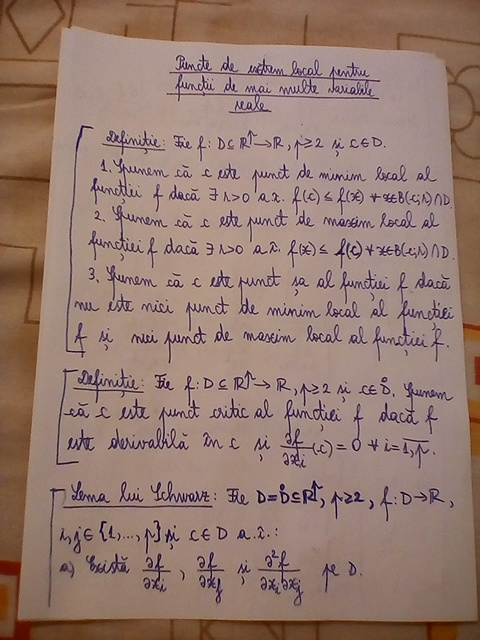 Puncte de extrem local pentru
funcții de mai multe variabile
reale
Definiție: Fie f: D⊆ℝᵖ→ℝ, p≥2 și c∈D.
1. Spunem că c este punct de minim local al
funcției f dacă ∃ r>0 a.î. f(c) ≤ f(x) ∀ x∈B(c;r)∩D.
2. Spunem că c este punct de maxim local al
funcției f dacă ∃ r>0 a.î. f(x) ≤ f(c) ∀ x∈B(c;r)∩D.
3. Spunem că c este punct șa al funcției f dacă
nu este nici punct de minim local al funcției
f și nici punct de maxim local al funcției f.
Definiție: Fie f: D⊆ℝᵖ→ℝ, p≥2 și c∈D̊. Spunem
că c este punct critic al funcției f dacă f
este derivabilă în c și ∂f/∂xᵢ(c) = 0 ∀ i=1,p.
Lema lui Schwarz: Fie D=D̊⊆ℝᵖ, p≥2, f: D→ℝ,
i,j∈{1,...,p} și c∈D a.î.:
a) Există ∂f/∂xᵢ, ∂f/∂xⱼ și ∂²f/∂xᵢ∂xⱼ pe D.